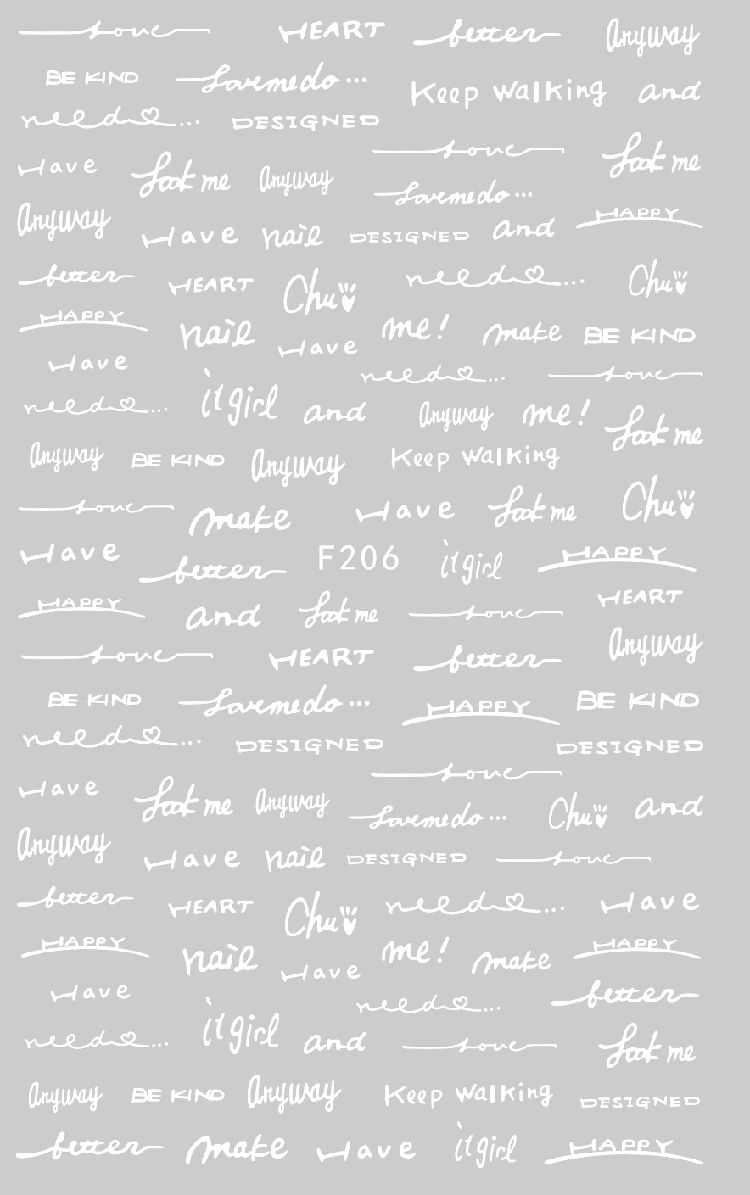 Love HEART better Anyway
BE KIND Lovemedo...
Keep Walking and
need... DESIGNED
Love
Have Look me Anyway Look me
Lovemedo...
Anyway HAPPY
Have nail DESIGNED and
better HEART Chu need... Chu
HAPPY nail me! make BE KIND
Have Have
need... Love
need... it girl and Anyway me! Look me
Anyway BE KIND Anyway Keep Walking
Love make Have Look me Chu
Have better F206 it girl HAPPY
HAPPY and Look me Love HEART
Love HEART better Anyway
BE KIND Lovemedo... HAPPY BE KIND
need... DESIGNED DESIGNED
Love
Have Look me Anyway Lovemedo... Chu and
Anyway Have nail DESIGNED Love
better HEART Chu need... Have
HAPPY nail me! make HAPPY
Have Have need... better
need... it girl and Love Look me
Anyway BE KIND Anyway Keep Walking DESIGNED
better make Have it girl HAPPY